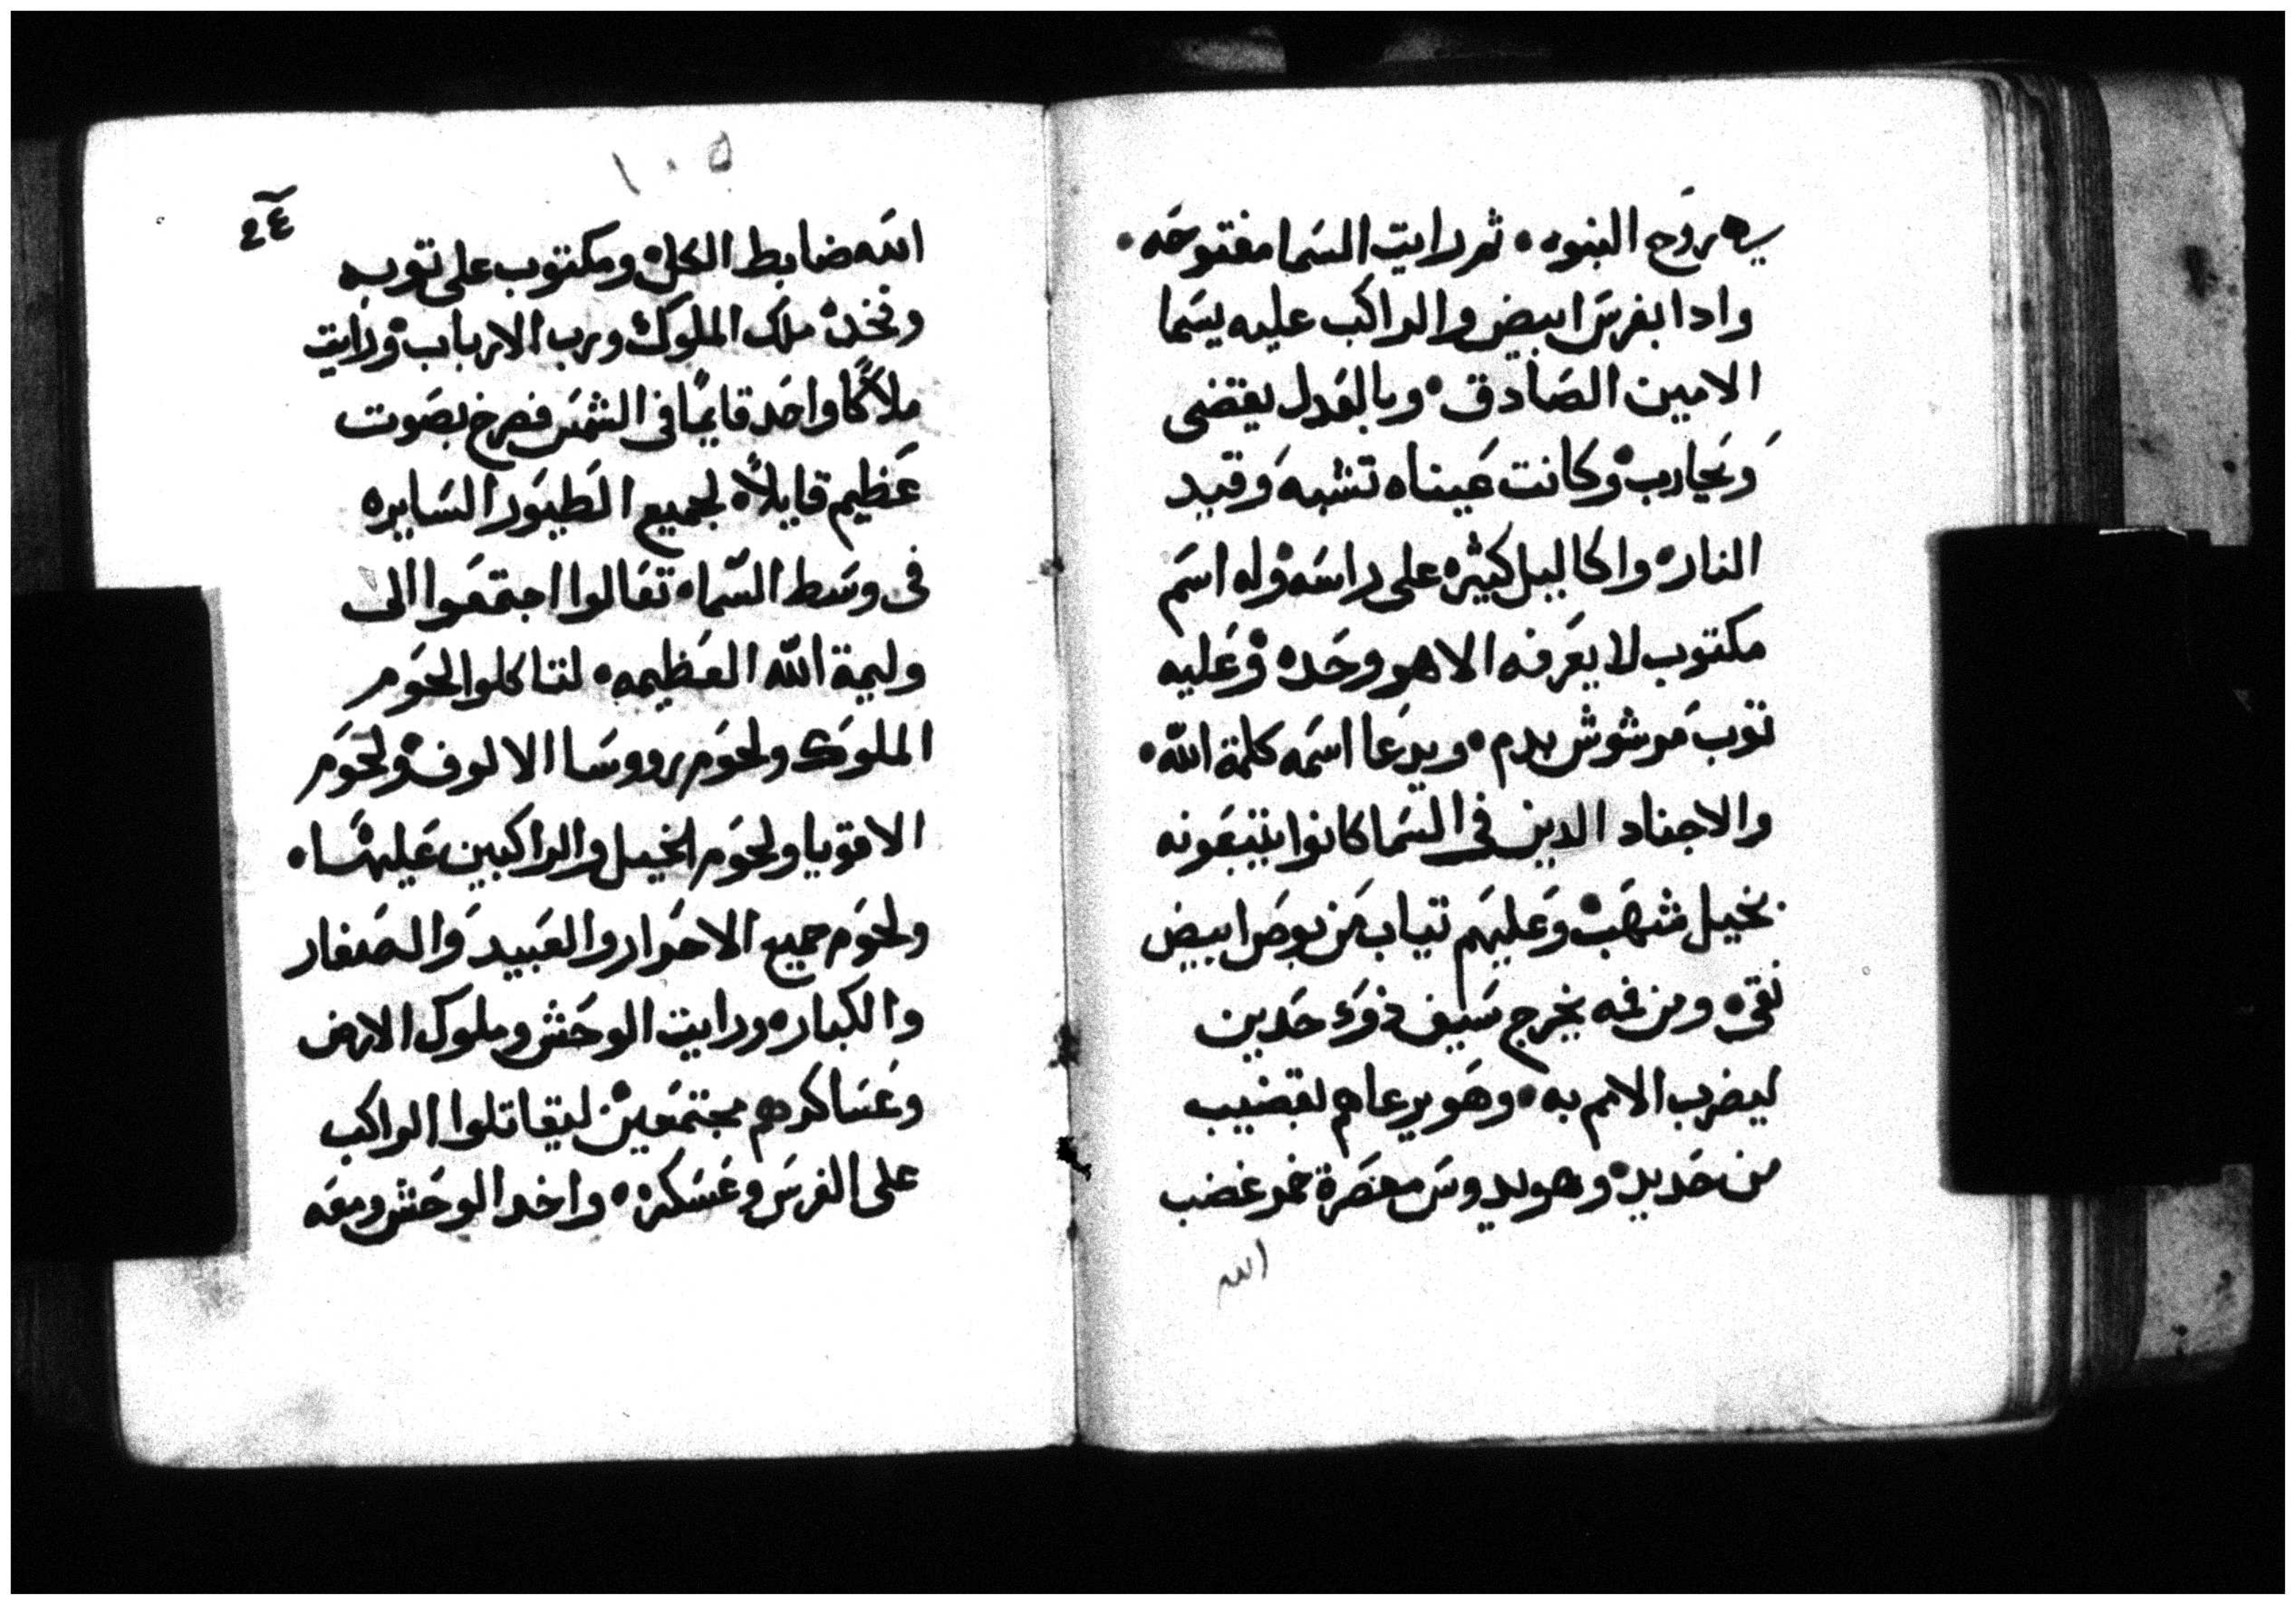 يه روح النبوه • ثم رايت السما مفتوحه •
وادا بفرس ابيض والراكب عليه يسما
الامين الصادق • وبالعدل يقضى
ويحارب • وكانت عيناه تشبه وقيد
النار • واكاليل كثيره على راسه • وله اسم
مكتوب لا يعرفه الا هو وحده • وعليه
توب مرشوش بدم • ويدعا اسمه كلمة الله •
والاجناد الدين في السما كانوا يتبعونه
بخيل شهب • وعليهم تياب من بوص ابيض
نقي • ومن فمه يخرج سيف ذو حدين
ليضرب الامم به • وهو يرعاهم بقضيب
من حديد • وهو يدوس معصرة خمر غضب
الله
١٠٥
الله ضابط الكل • ومكتوب على توبه
وفخده ملك الملوك ورب الارباب • ورايت
ملاكا واحد قايما في الشمس فصرخ بصوت
عظيم قايلا • لجميع الطيور السايره
في وسط السما • تعالوا اجتمعوا الى
وليمة الله العظيمه • لتاكلوا لحوم
الملوك ولحوم رووسا الالوف • ولحوم
الاقويا ولحوم الخيل والراكبين عليها •
ولحوم جميع الاحرار والعبيد والصغار
والكبار • ورايت الوحش وملوك الارض
وعساكرهم مجتمعين • ليقاتلوا الراكب
على الفرس وعسكره • واخد الوحش ومعه